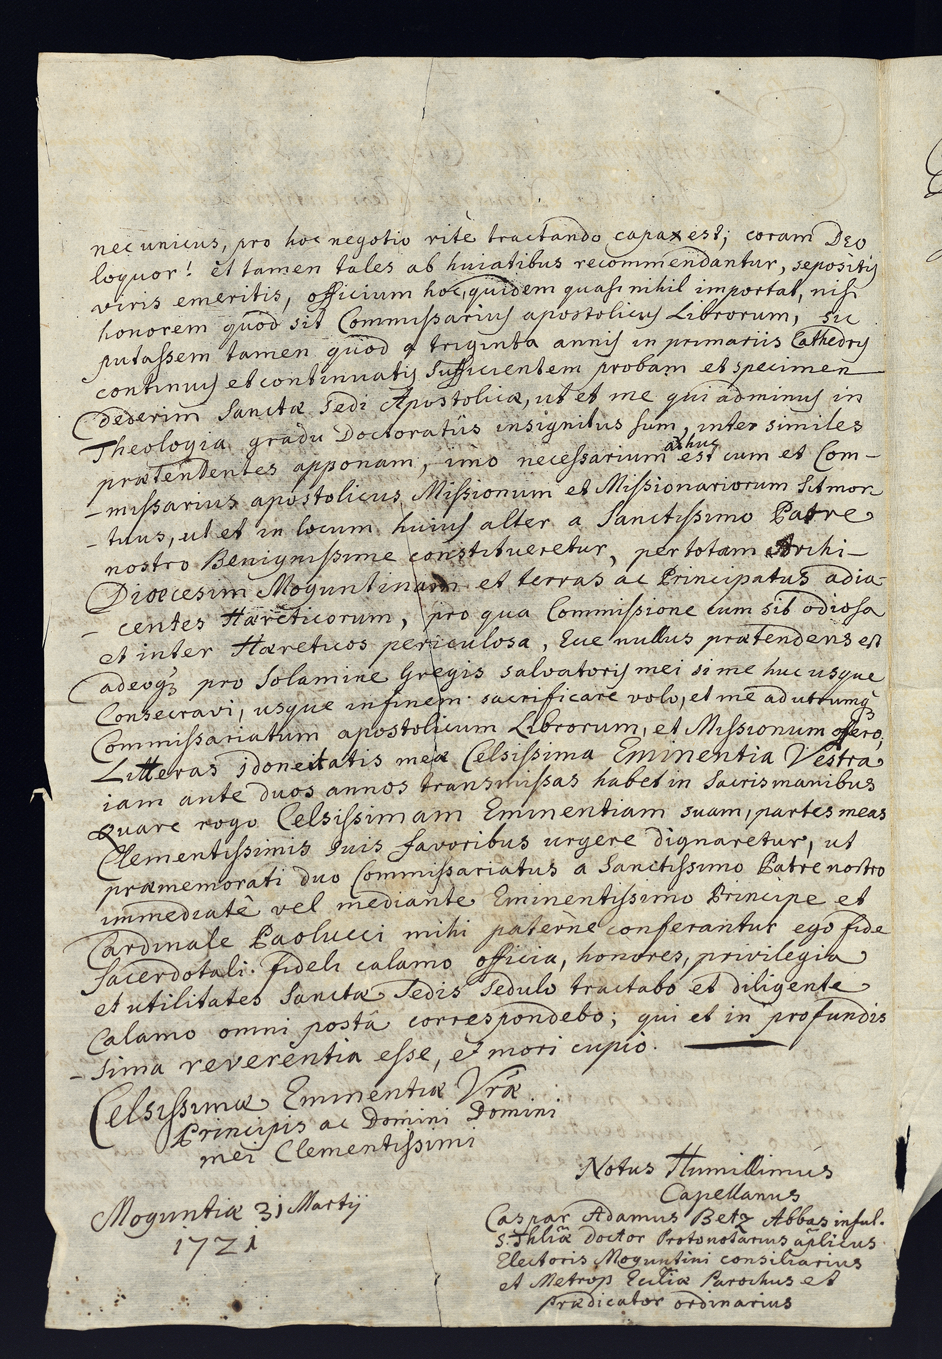 nec unicus, pro hoc negotio ritè tractando capax est; coram Deo
loquor! et tamen tales ab huiatibus recommendantur, sepositis
viris emeritis, officium hoc, quidem quasi nihil importat, nisi
honorem quod sit Commissarius apostolicus Librorum, sic
putassem tamen quod a triginta annis in primariis Cathedris
continuis et continuatis sufficientem probam et specimen
dederim Sanctæ Sedi Apostolicæ, ut et me qui adminus in
Theologia gradu Doctoratûs insignitus sum, inter similes
prætendentes apponam, imò necessarium adhuc est cum et Com-
-missarius apostolicus Missionum et Missionariorum sit mor
-tuus, ut et in locum huius alter a Sanctissimo Patre
nostro Benignissime constitueretur, per totam Archi-
Dioecesim Moguntinam et terras ac Principatus adia-
-centes Hæreticorum, pro qua Commissione cum sit odiosa
et inter Hæreticos periculosa, huc nullus prætendens est
adeoq3 pro solamine Gregis salvatoris mei si me huc usque
Consecravi, usque in finem sacrificare volo, et me ad utrumq3
Commissariatum apostolicum Librorum, et Missionum offero,
Litteras idoneitatis meæ Celsissima Eminentia Vestra
iam ante duos annos transmissas habet in Sacris manibus
quare rogo Celsissimam Eminentiam suam, partes meas
Clementissimis suis favoribus urgere dignaretur, ut
præmemorati duo Commissariatus a Sanctissimo Patre nostro
immediatè vel mediante Eminentissimo Principe et
Cardinale Paolucci mihi paternè conferantur ego fide
Sacerdotali. fideli calamo officia, honores, privilegia
et utilitates Sanctæ Sedis sedulo tractabo et diligente
Calamo omni postâ correspondebo; qui et in profundis
-sima reverentia esse, et mori cupio.
Celsissimæ Eminentiæ Vræ
Principis ac Domini Domini
mei Clementissimi
Notus Humillimus
Capellanus
Moguntiæ 31 Martij
1721
Caspar Adamus Betz Abbas inful.
S. Thliæ Doctor Protonotarius aplicus
Electoris Moguntini consiliarius
et Metrop Ecliæ Parochus et
Prædicator ordinarius